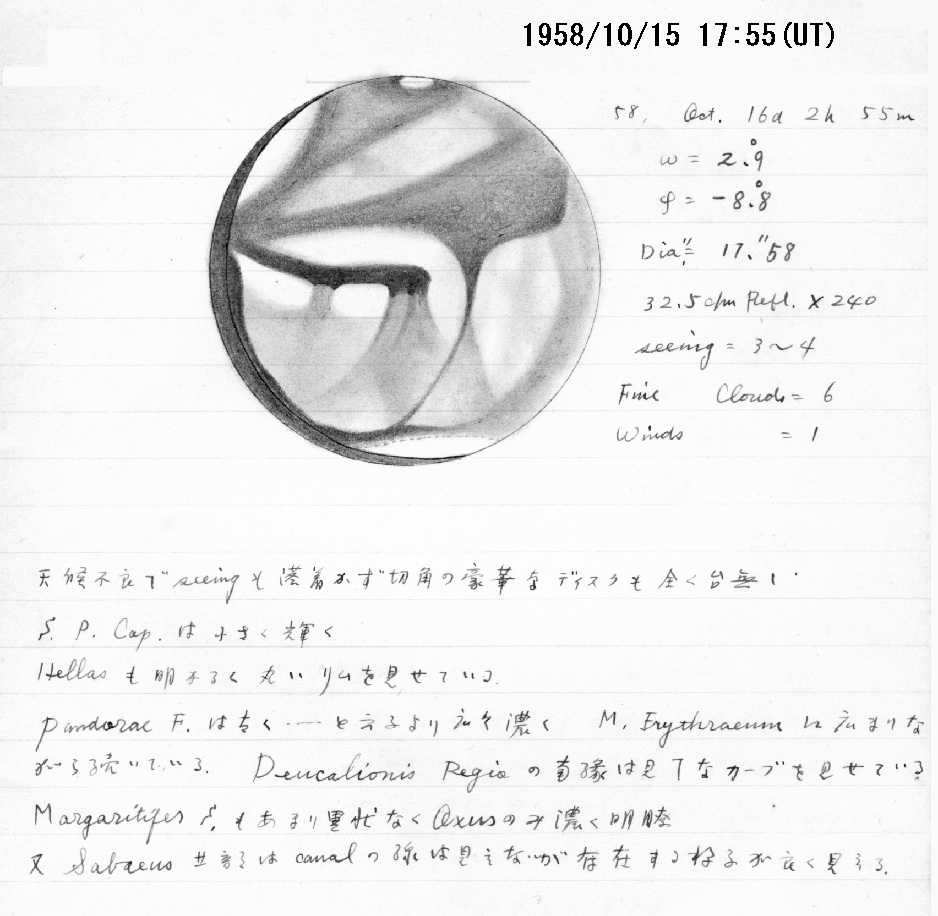 1958/10/15 17:55(UT)
58. Oct. 16d 2h 55m
ω = 2.°9
φ = -8.°8
Dia = 17."58
32.5cm Refl. × 240
seeing = 3〜4
Fine Clouds = 6
Winds = 1
天候不良でseeingも落着かず切角の豪華なディスクも全く台無し.
S. P. Cap. は小さく輝く
Hellas も明るく丸いリムを見せている.
Pandorae F. は く 云うより 濃く M. Erythraeum に広まりな
がら続いている. Deucalionis Regio の南縁は見事なカーブを見せている.
Margaritifer S. もあまり異状なく Oxus のみ濃く明瞭
又 Sabaeus 北部は canal の 見えないが存在する様子が良く見える.